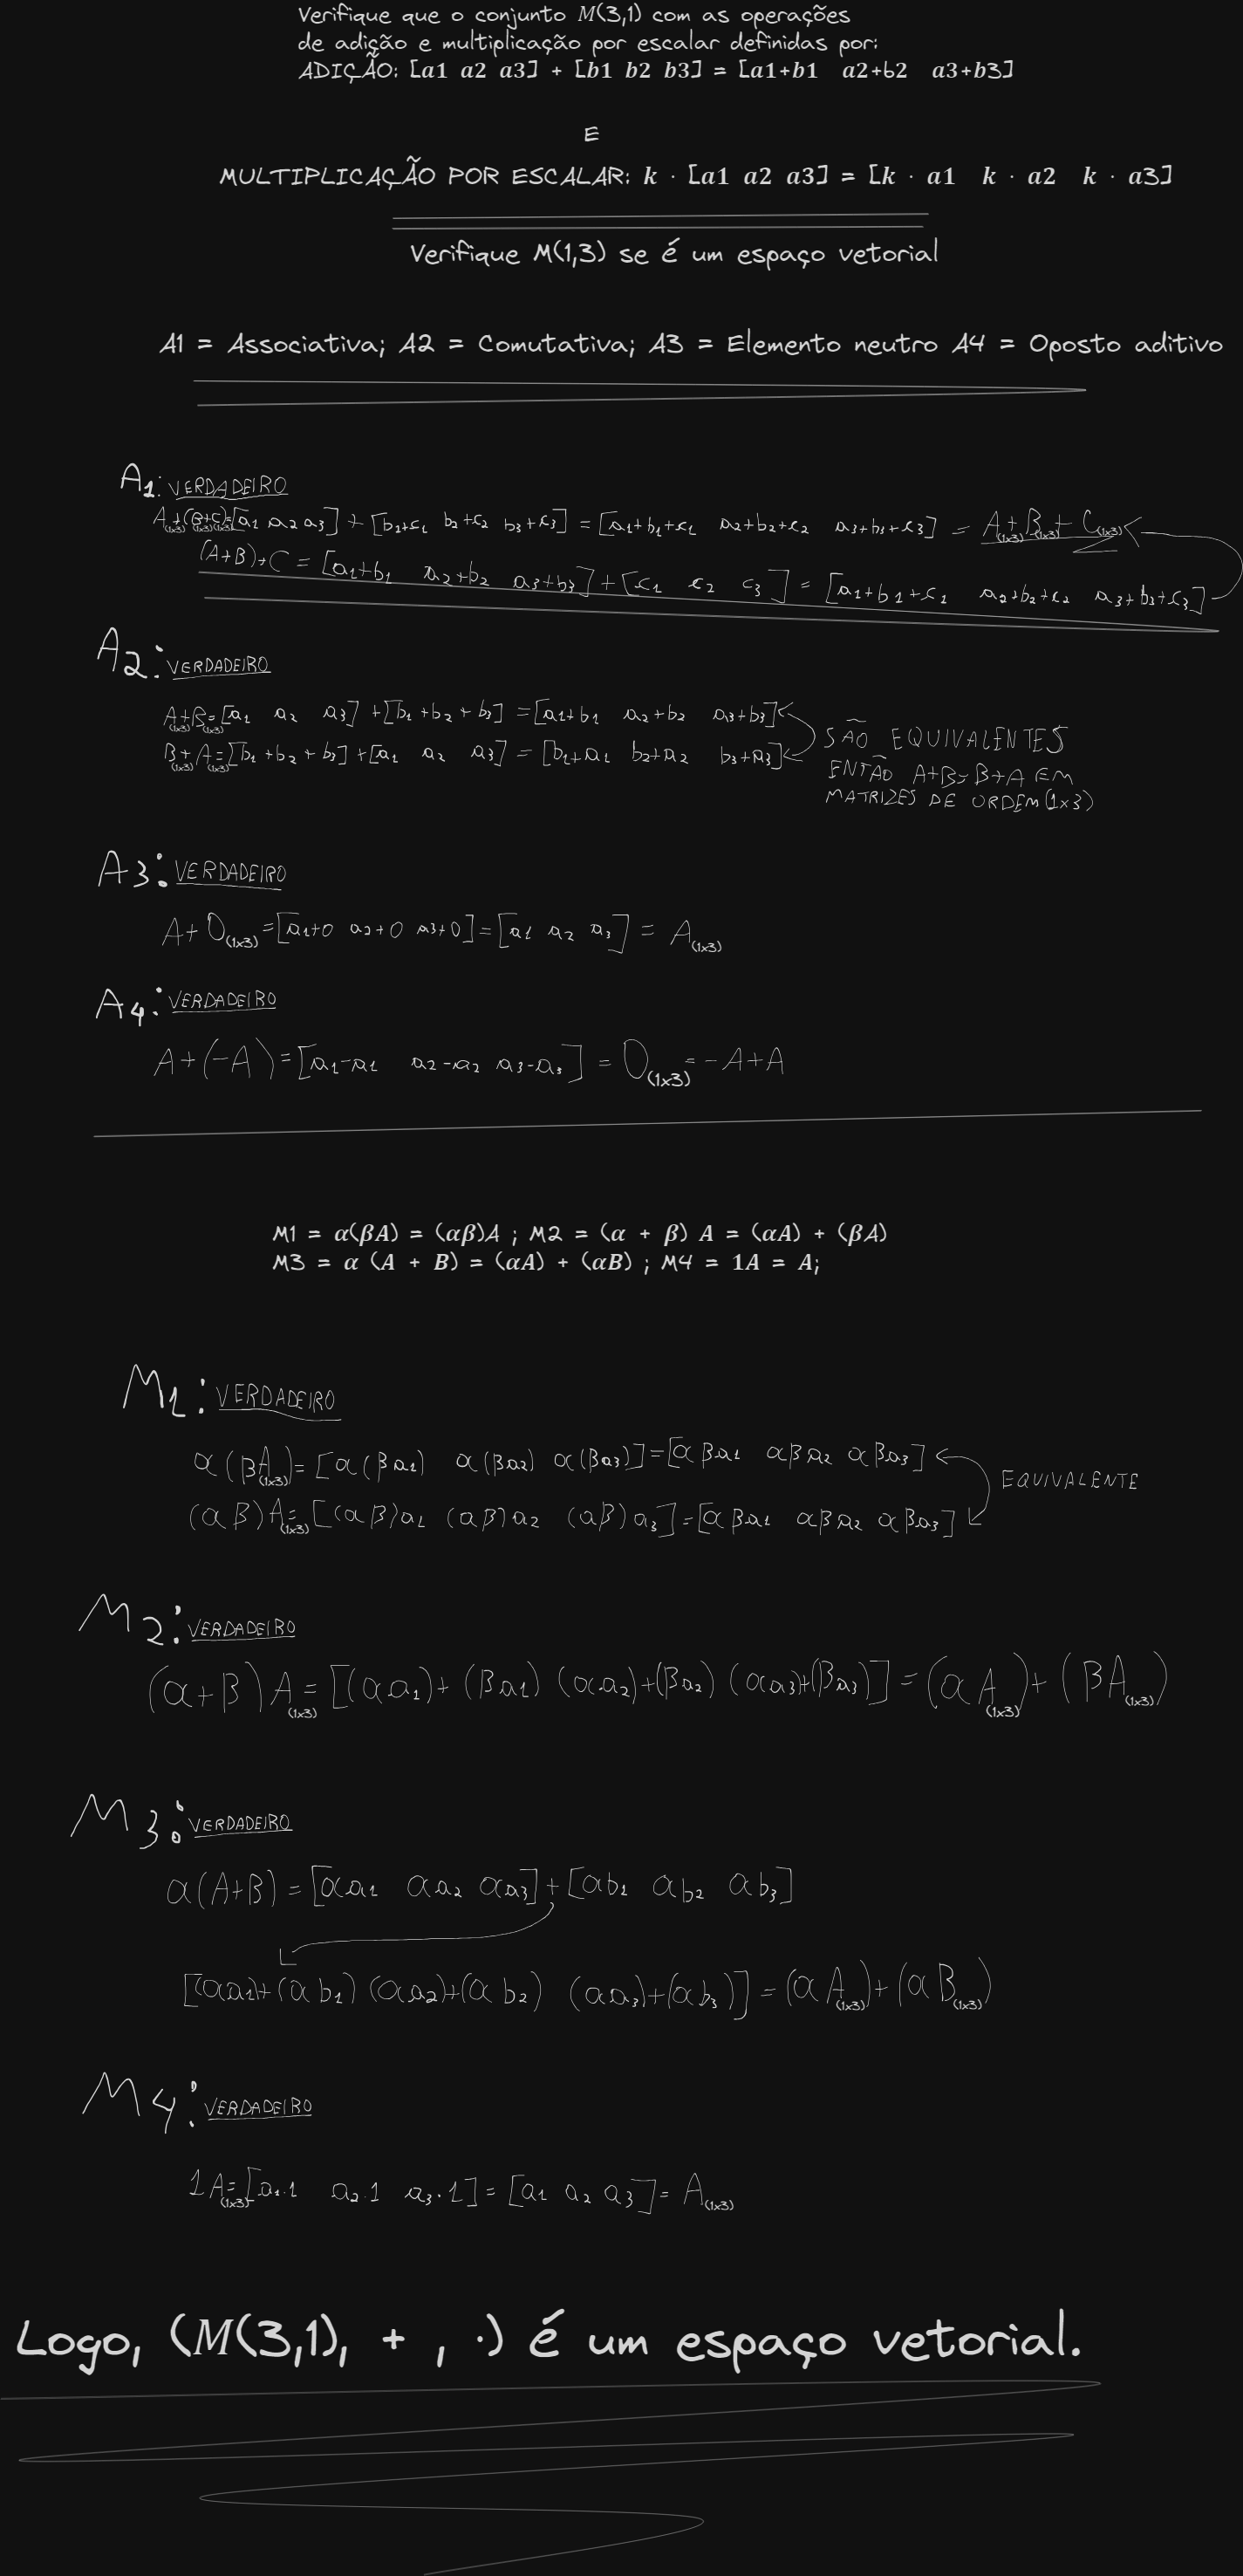 Verifique que o conjunto M(3,1) com as operações
de adição e multiplicação por escalar definidas por:
ADIÇÃO: [a1 a2 a3] + [b1 b2 b3] = [a1+b1 a2+b2 a3+b3]
E
MULTIPLICAÇÃO POR ESCALAR: k · [a1 a2 a3] = [k · a1 k · a2 k · a3]
Verifique M(1,3) se é um espaço vetorial
A1 = Associativa; A2 = Comutativa; A3 = Elemento neutro A4 = Oposto aditivo
A1: VERDADEIRO
A(1x3)+(B(1x3)+C(1x3))=[a1 a2 a3] + [b1+c1 b2+c2 b3+c3] = [a1+b1+c1 a2+b2+c2 a3+b3+c3] = A(1x3)+B(1x3)+C(1x3)
(A+B)+C = [a1+b1 a2+b2 a3+b3]+[c1 c2 c3] = [a1+b1+c1 a2+b2+c2 a3+b3+c3]
A2: VERDADEIRO
A(1x3)+B(1x3)=[a1 a2 a3] +[b1+b2+b3] =[a1+b1 a2+b2 a3+b3]
B(1x3)+A(1x3)=[b1+b2+b3]+[a1 a2 a3] = [b1+a1 b2+a2 b3+a3]
SÃO EQUIVALENTES
ENTÃO A+B=B+A EM
MATRIZES DE ORDEM(1x3)
A3: VERDADEIRO
A+O(1x3)=[a1+0 a2+0 a3+0]=[a1 a2 a3] = A(1x3)
A4: VERDADEIRO
A+(-A)=[a1-a1 a2-a2 a3-a3] = O(1x3)=-A+A
M1 = α(βA) = (αβ)A ; M2 = (α + β) A = (αA) + (βA)
M3 = α (A + B) = (αA) + (αB) ; M4 = 1A = A;
M1: VERDADEIRO
α(βA(1x3))=[α(βa1) α(βa2) α(βa3)]=[αβa1 αβa2 αβa3]
EQUIVALENTE
(αβ)A(1x3)=[(αβ)a1 (αβ)a2 (αβ)a3]=[αβa1 αβa2 αβa3]
M2: VERDADEIRO
(α+β)A(1x3)=[(αa1)+(βa1) (αa2)+(βa2) (αa3)+(βa3)]=(αA(1x3))+(βA(1x3))
M3: VERDADEIRO
α(A+B)=[αa1 αa2 αa3]+[αb1 αb2 αb3]
[(αa1)+(αb1) (αa2)+(αb2) (αa3)+(αb3)]=(αA(1x3))+(αB(1x3))
M4: VERDADEIRO
1A(1x3)=[a1.1 a2.1 a3.1]=[a1 a2 a3]=A(1x3)
Logo, (M(3,1), + , ·) é um espaço vetorial.